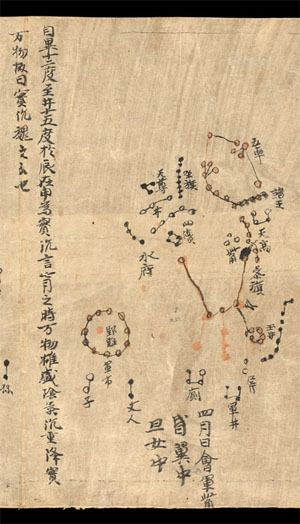 自畢十二度至井十五度於辰在申為實沉言七月之時万物雄盛陰氣沉重降實
万物故曰實沉魏之分也
五車
諸王
天高
參旗
天尊
坐旗
四瀆
水府
玉井
野雞
軍市
子
丈人
廁
軍井
四月日會畢觜
昏翼中
旦女中